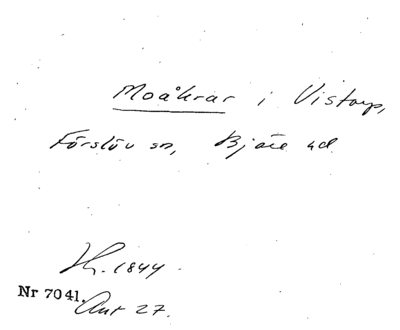 Moåkrar i Vistorp,
Förslöv sn, Bjäre hd.
1844.
Nr 7041.
Ant 27.